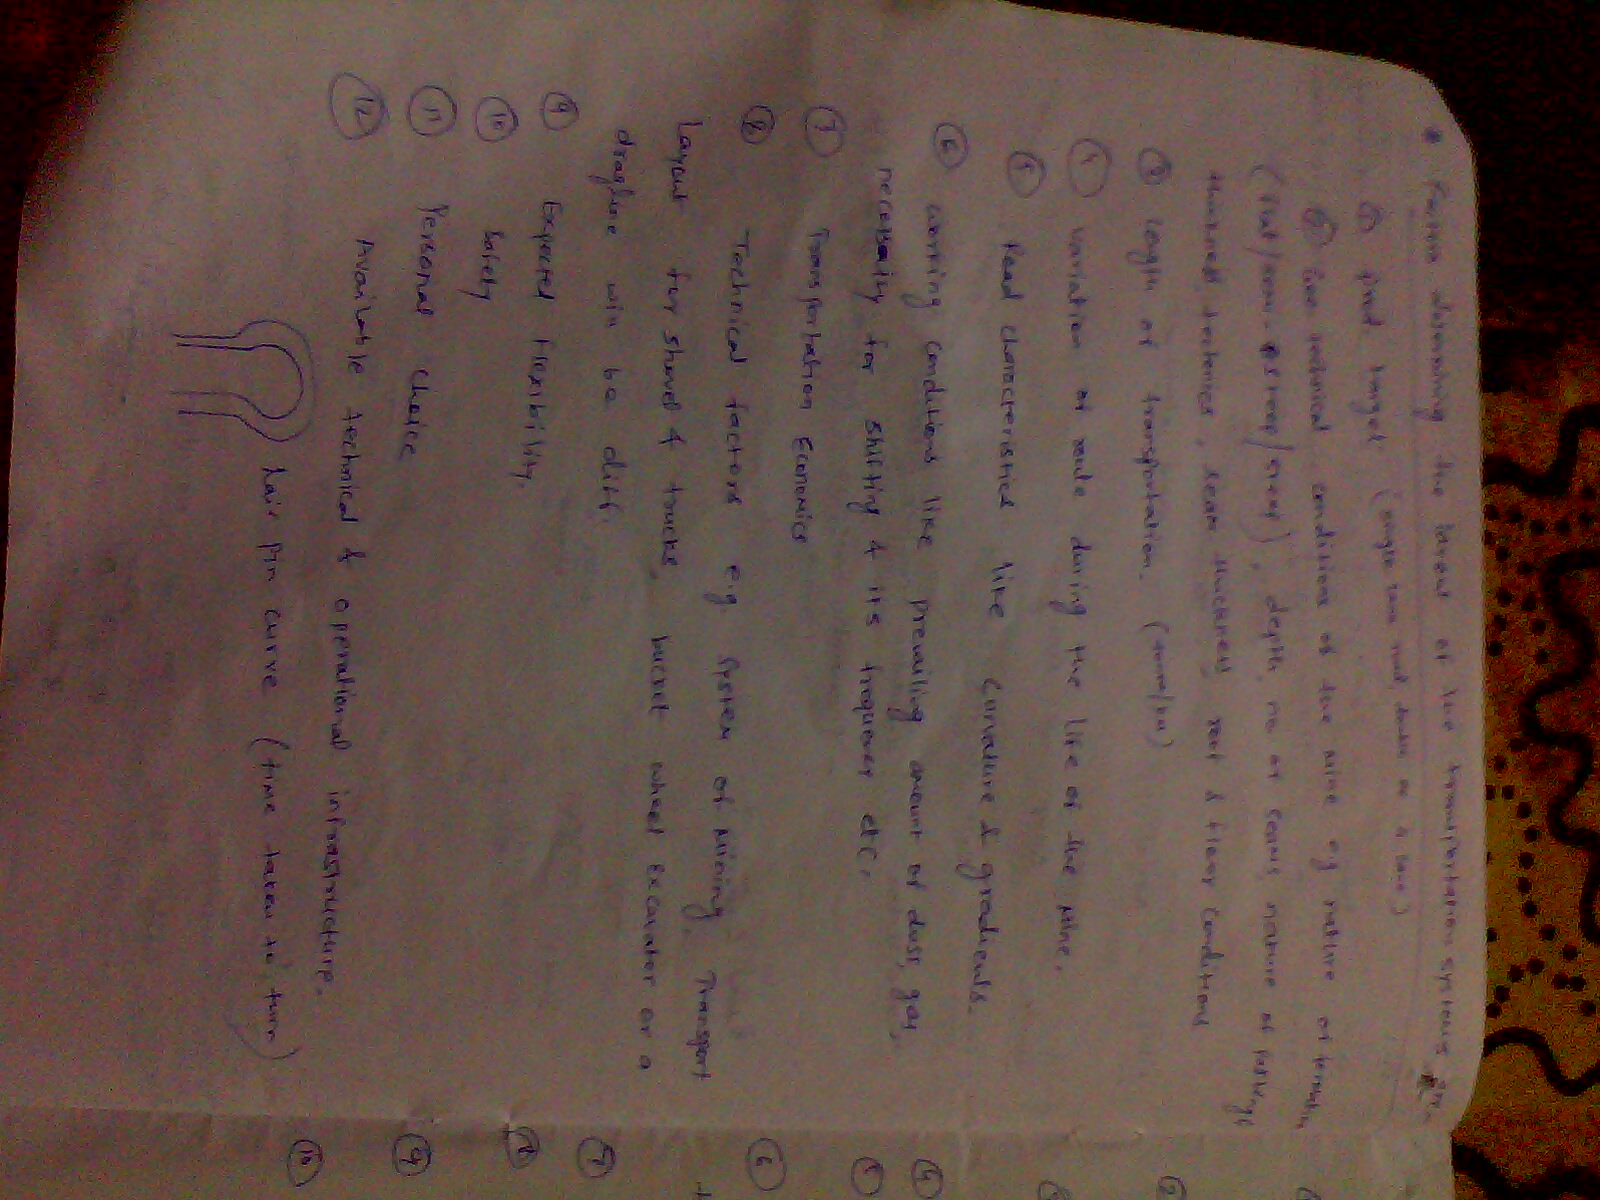 • Factors determining the layout of the transportation systems
① prod. target (single lane road, double or a lane)
② Geo technical conditions of the mine eg nature of formation
(flat/semi-steep/steep), depth, no. of seams, nature of partings
thickness, tectonics, seam thickness, roof & floor conditions
③ length of transportation. (tonne/km)
④ variation of route during the life of the Mine.
⑤ Road characteristics like curvature & gradients.
⑥ working conditions like prevailing amount of dust, gas,
necessity for shifting & its frequency etc.
⑦ Transportation Economics
⑧ Technical factors e.g. System of Mining. Transport
Layout for shovel & trucks, bucket wheel Excavator or a
dragline will be diff.
⑨ Expected Flexibility.
⑩ Safety
⑪ Personal choice
⑫ Available technical & operational infrastructure.
hair pin curve (time taken to turn)
②
④
⑤
⑥
⑦
⑧
⑨
⑩